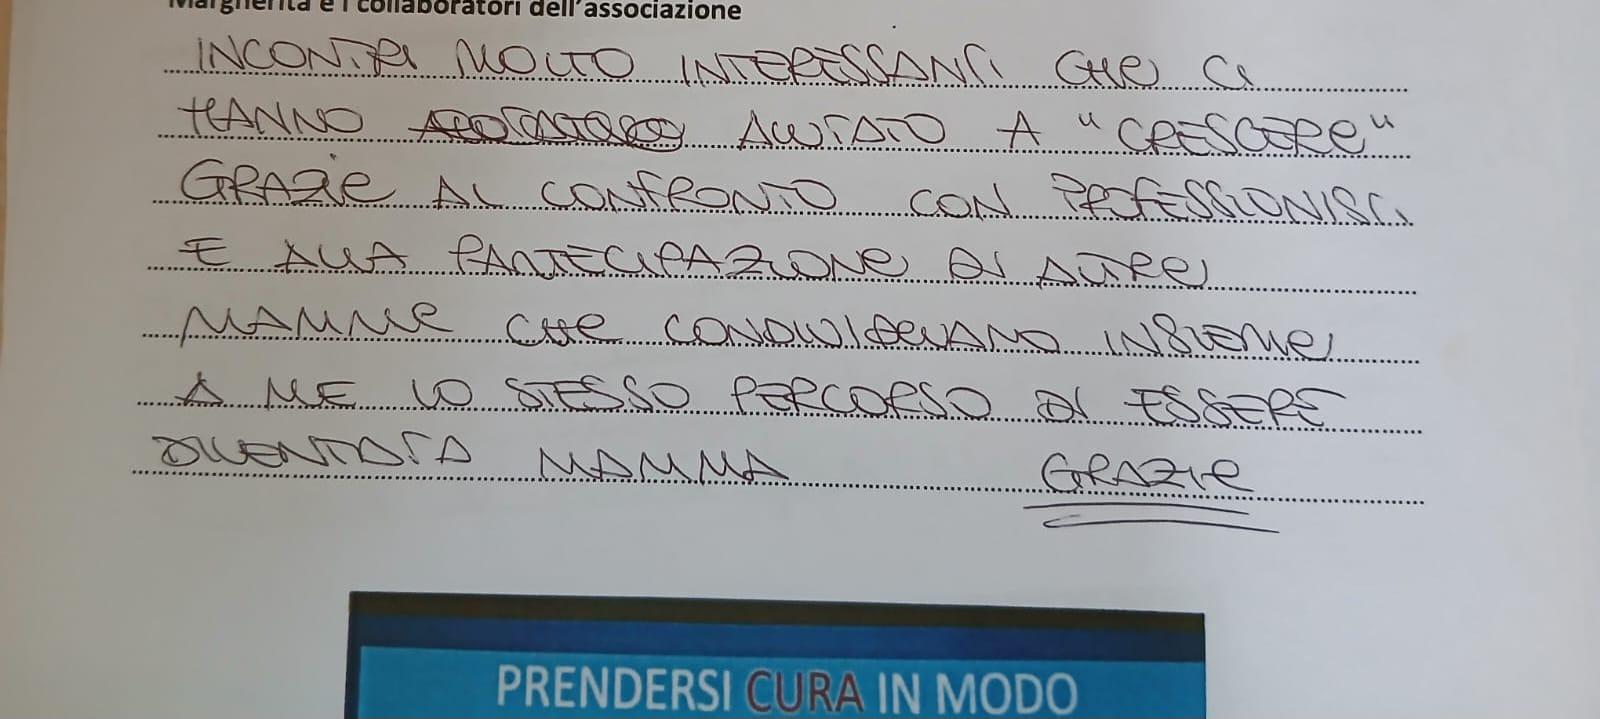 Margherita e i collaboratori dell'associazione
INCONTRI MOLTO INTERESSANTI CHE CI
HANNO AIUTATO A "CRESCERE"
GRAZIE AL CONFRONTO CON PROFESSIONISTI
E ALLA PARTECIPAZIONE DI ALTRE
MAMME CHE CONDIVIDEVANO INSIEME
A ME LO STESSO PERCORSO DI ESSERE
DIVENTATA MAMMA GRAZIE
PRENDERSI CURA IN MODO